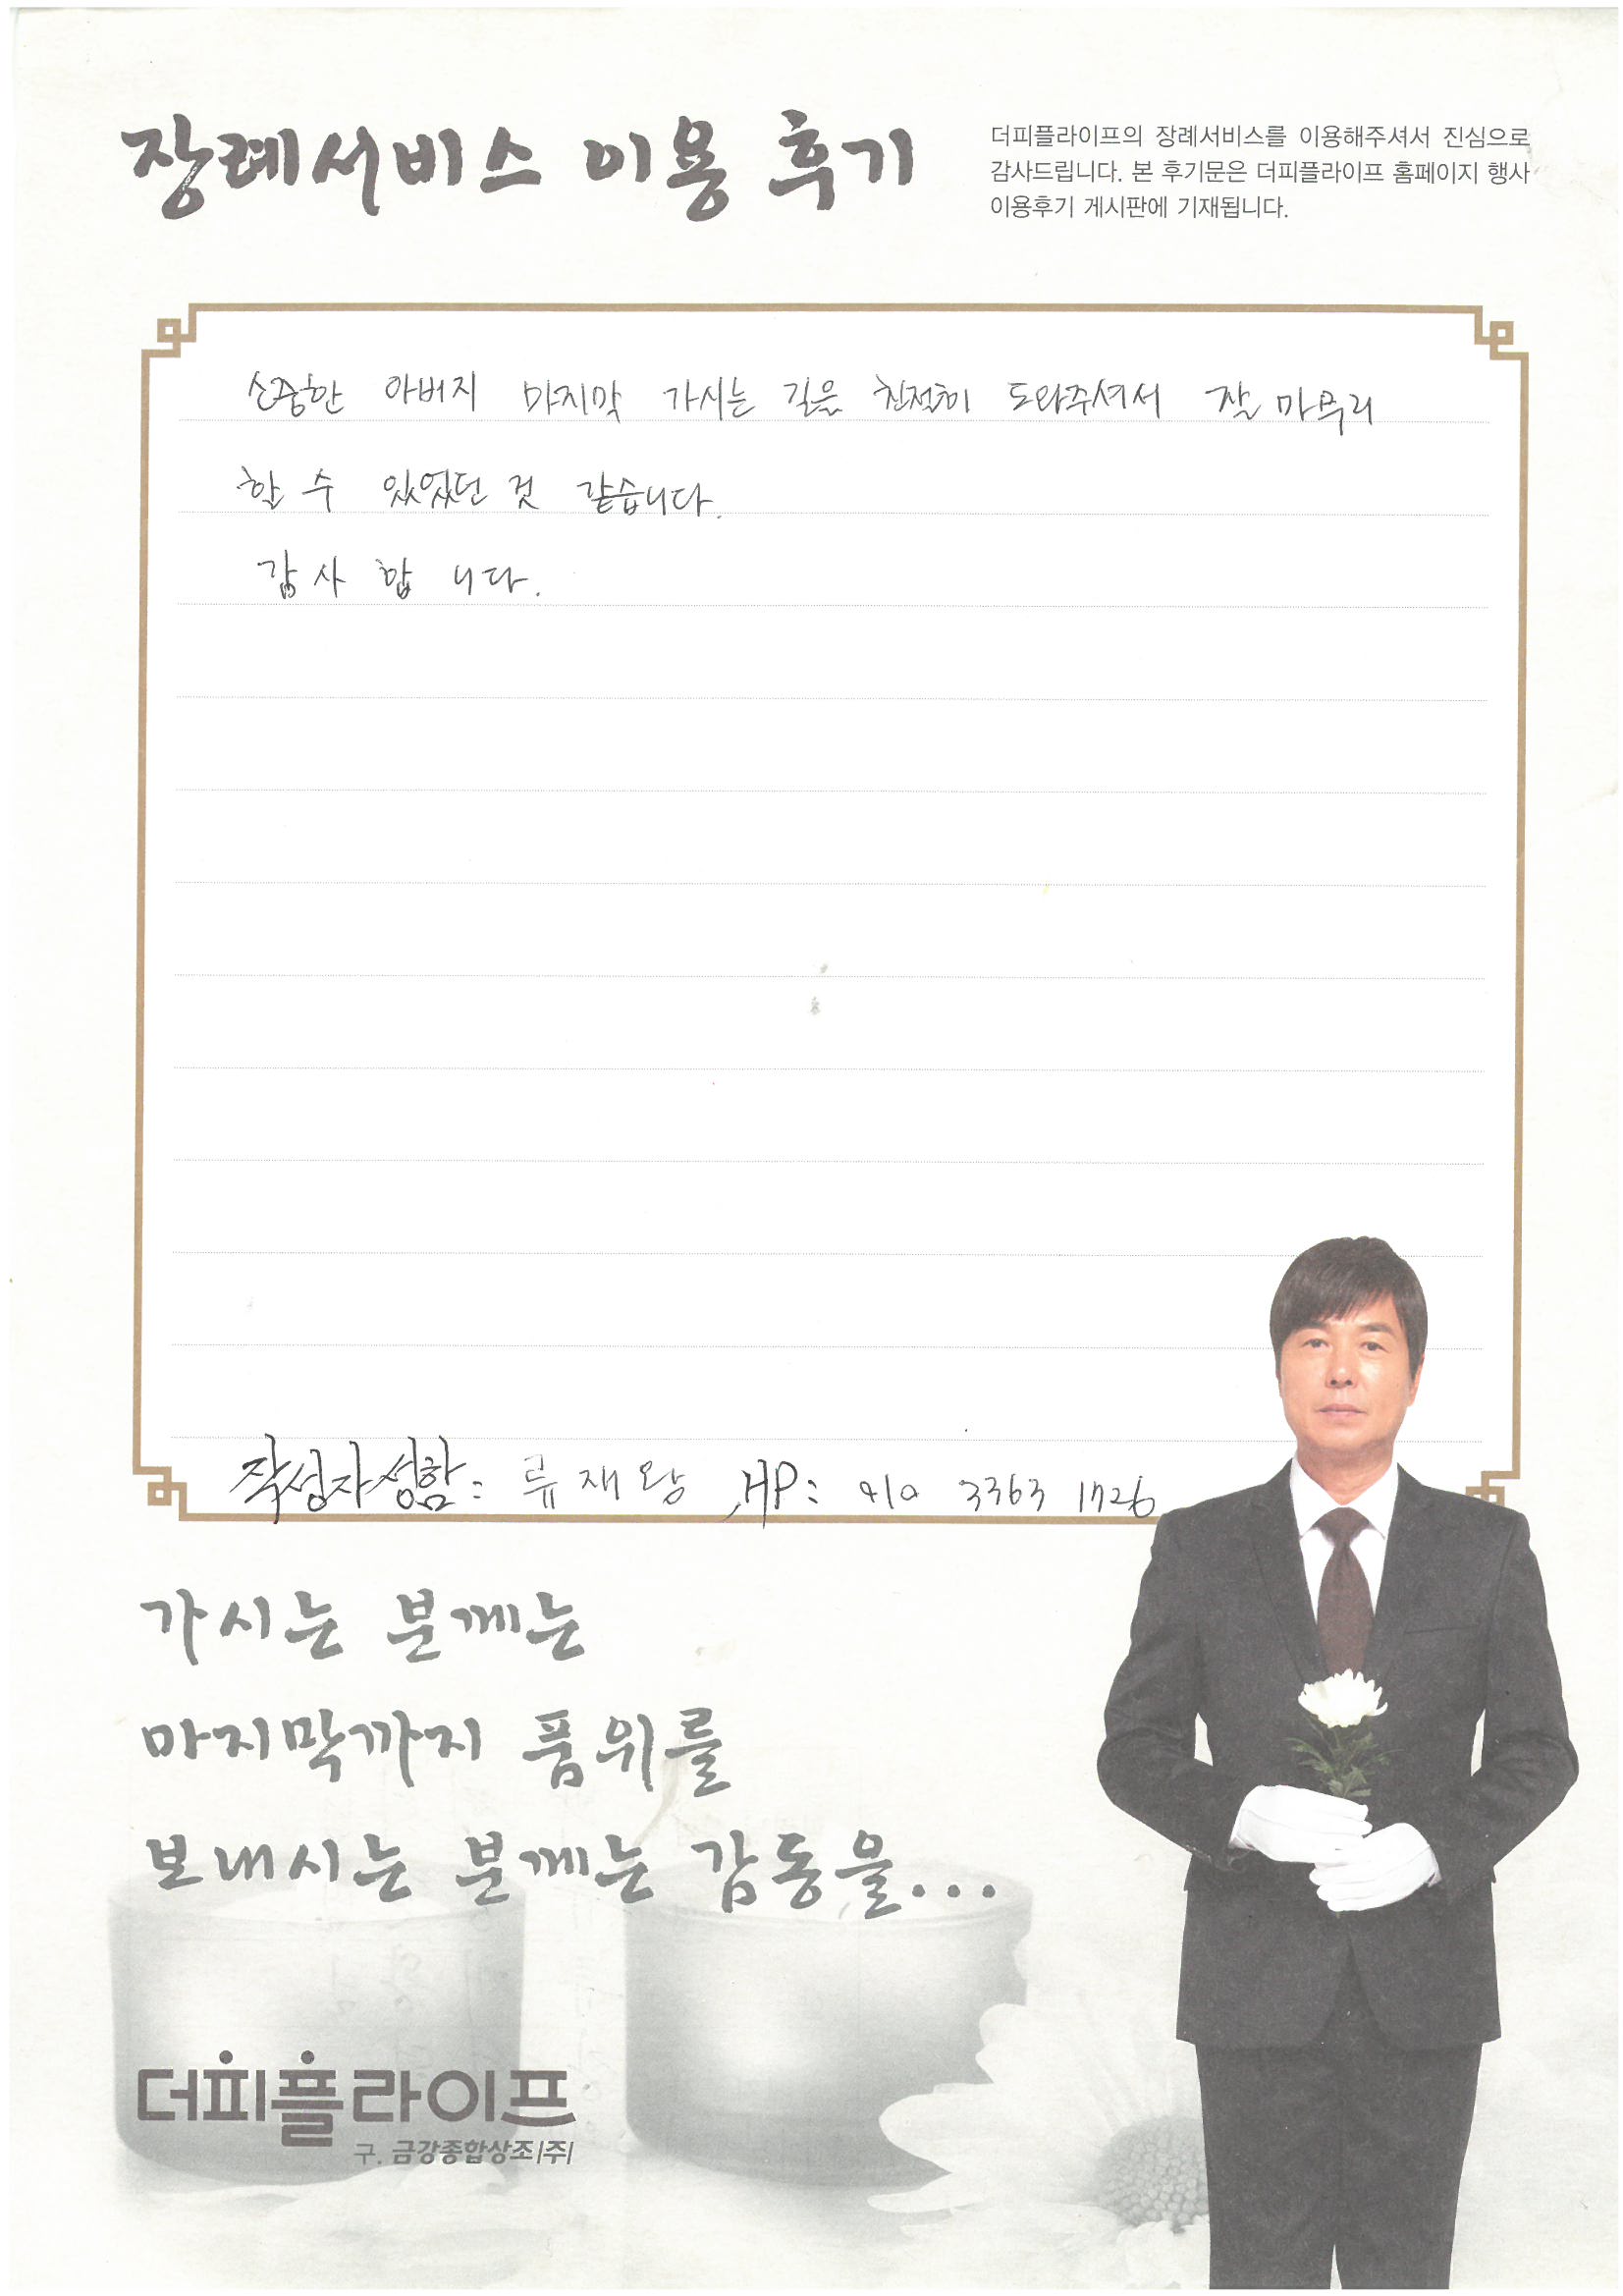 장례서비스 이용 후기
더피플라이프의 장례서비스를 이용해주셔서 진심으로
감사드립니다. 본 후기문은 더피플라이프 홈페이지 행사
이용후기 게시판에 기재됩니다.
소중한 아버지 마지막 가시는 길을 친절히 도와주셔서 잘 마무리
할 수 있었던 것 같습니다.
감사합니다.
작성자성함: 류재왕 ,HP: 010 3363 1726
가시는 분께는
마지막까지 품위를
보내시는 분께는 감동을...
더피플라이프
구. 금강종합상조|주|